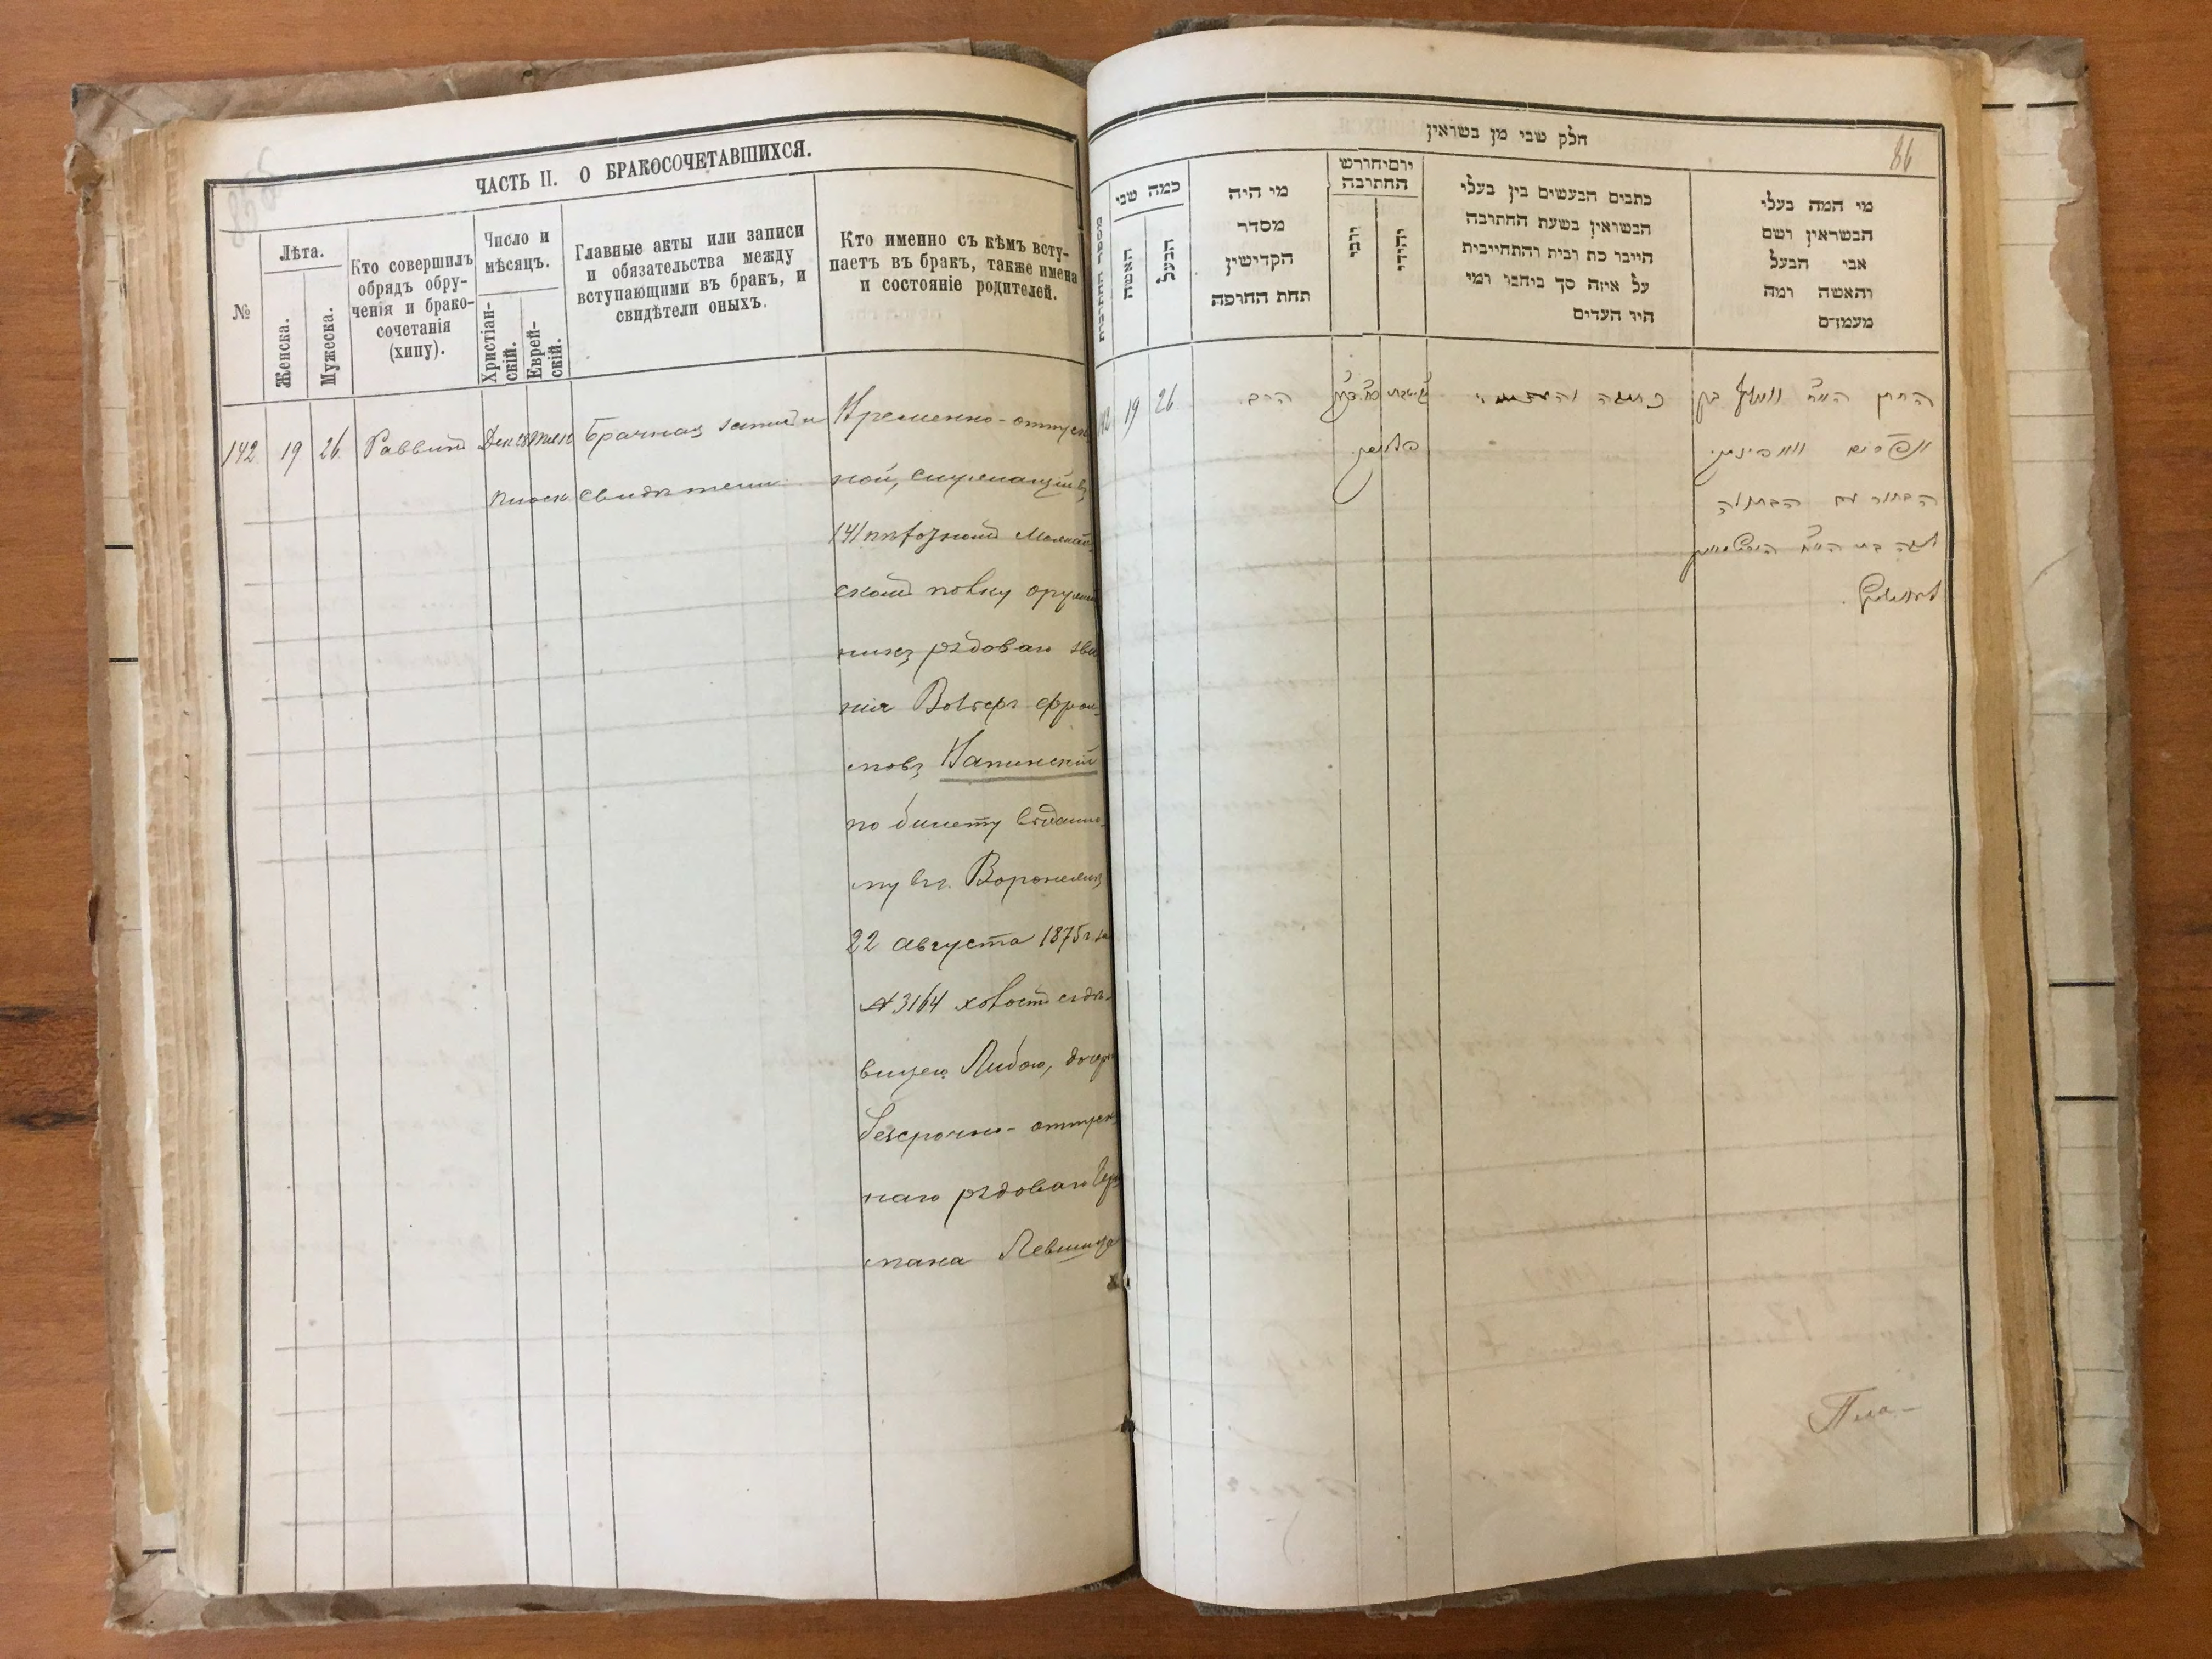 ЧАСТЬ II. О БРАКОСОЧЕТАВШИХСЯ.
№
Лѣта.
Женска.
Мужеска.
Кто совершилъ
обрядъ обру-
ченія и брако-
сочетанія
(хипу).
Число и
мѣсяцъ.
Христіан-
скій.
Еврей-
скій.
Главные акты или записи
и обязательства между
вступающими въ бракъ, и
свидѣтели оныхъ.
Кто именно съ кѣмъ всту-
паетъ въ бракъ, также имена
и состояніе родителей.
142
19
26
Раввинъ
Брачная запись и
свидѣтели
Временно-отпуск
ной, служащій въ
141 пѣхотномъ Можай
скомъ полку оружей
никъ рядоваго зва
нія Вольфъ Фрои-
мовъ Капинскій
по билету выданно-
му в г. Воронежѣ
22 августа 1875 г. за
№ 3164 холостъ съ дѣ-
вицею Либою, дочер
безсрочно-отпуск
наго рядоваго Гер
мана Левшица
חלק שבי מן בשראין
86
מספר החתובות
כמה שבי
האשה
הבעל
מי היה
מסדר
הקדישין
תחת החופה
יוםיחורש
החתובה
יובי
יהודי
כתבים הבעשים בין בעלי
הבשואין בשעת החתובה
הייבו כת ובית והתחייבית
על איזה סך ביחבו ומי
היו העדים
מי המה בעלי
הבשראין ושם
אבי הבעל
והאשה ומה
מעמדם
142
19
26
הרב
החתן
הבחור עם הבתולה